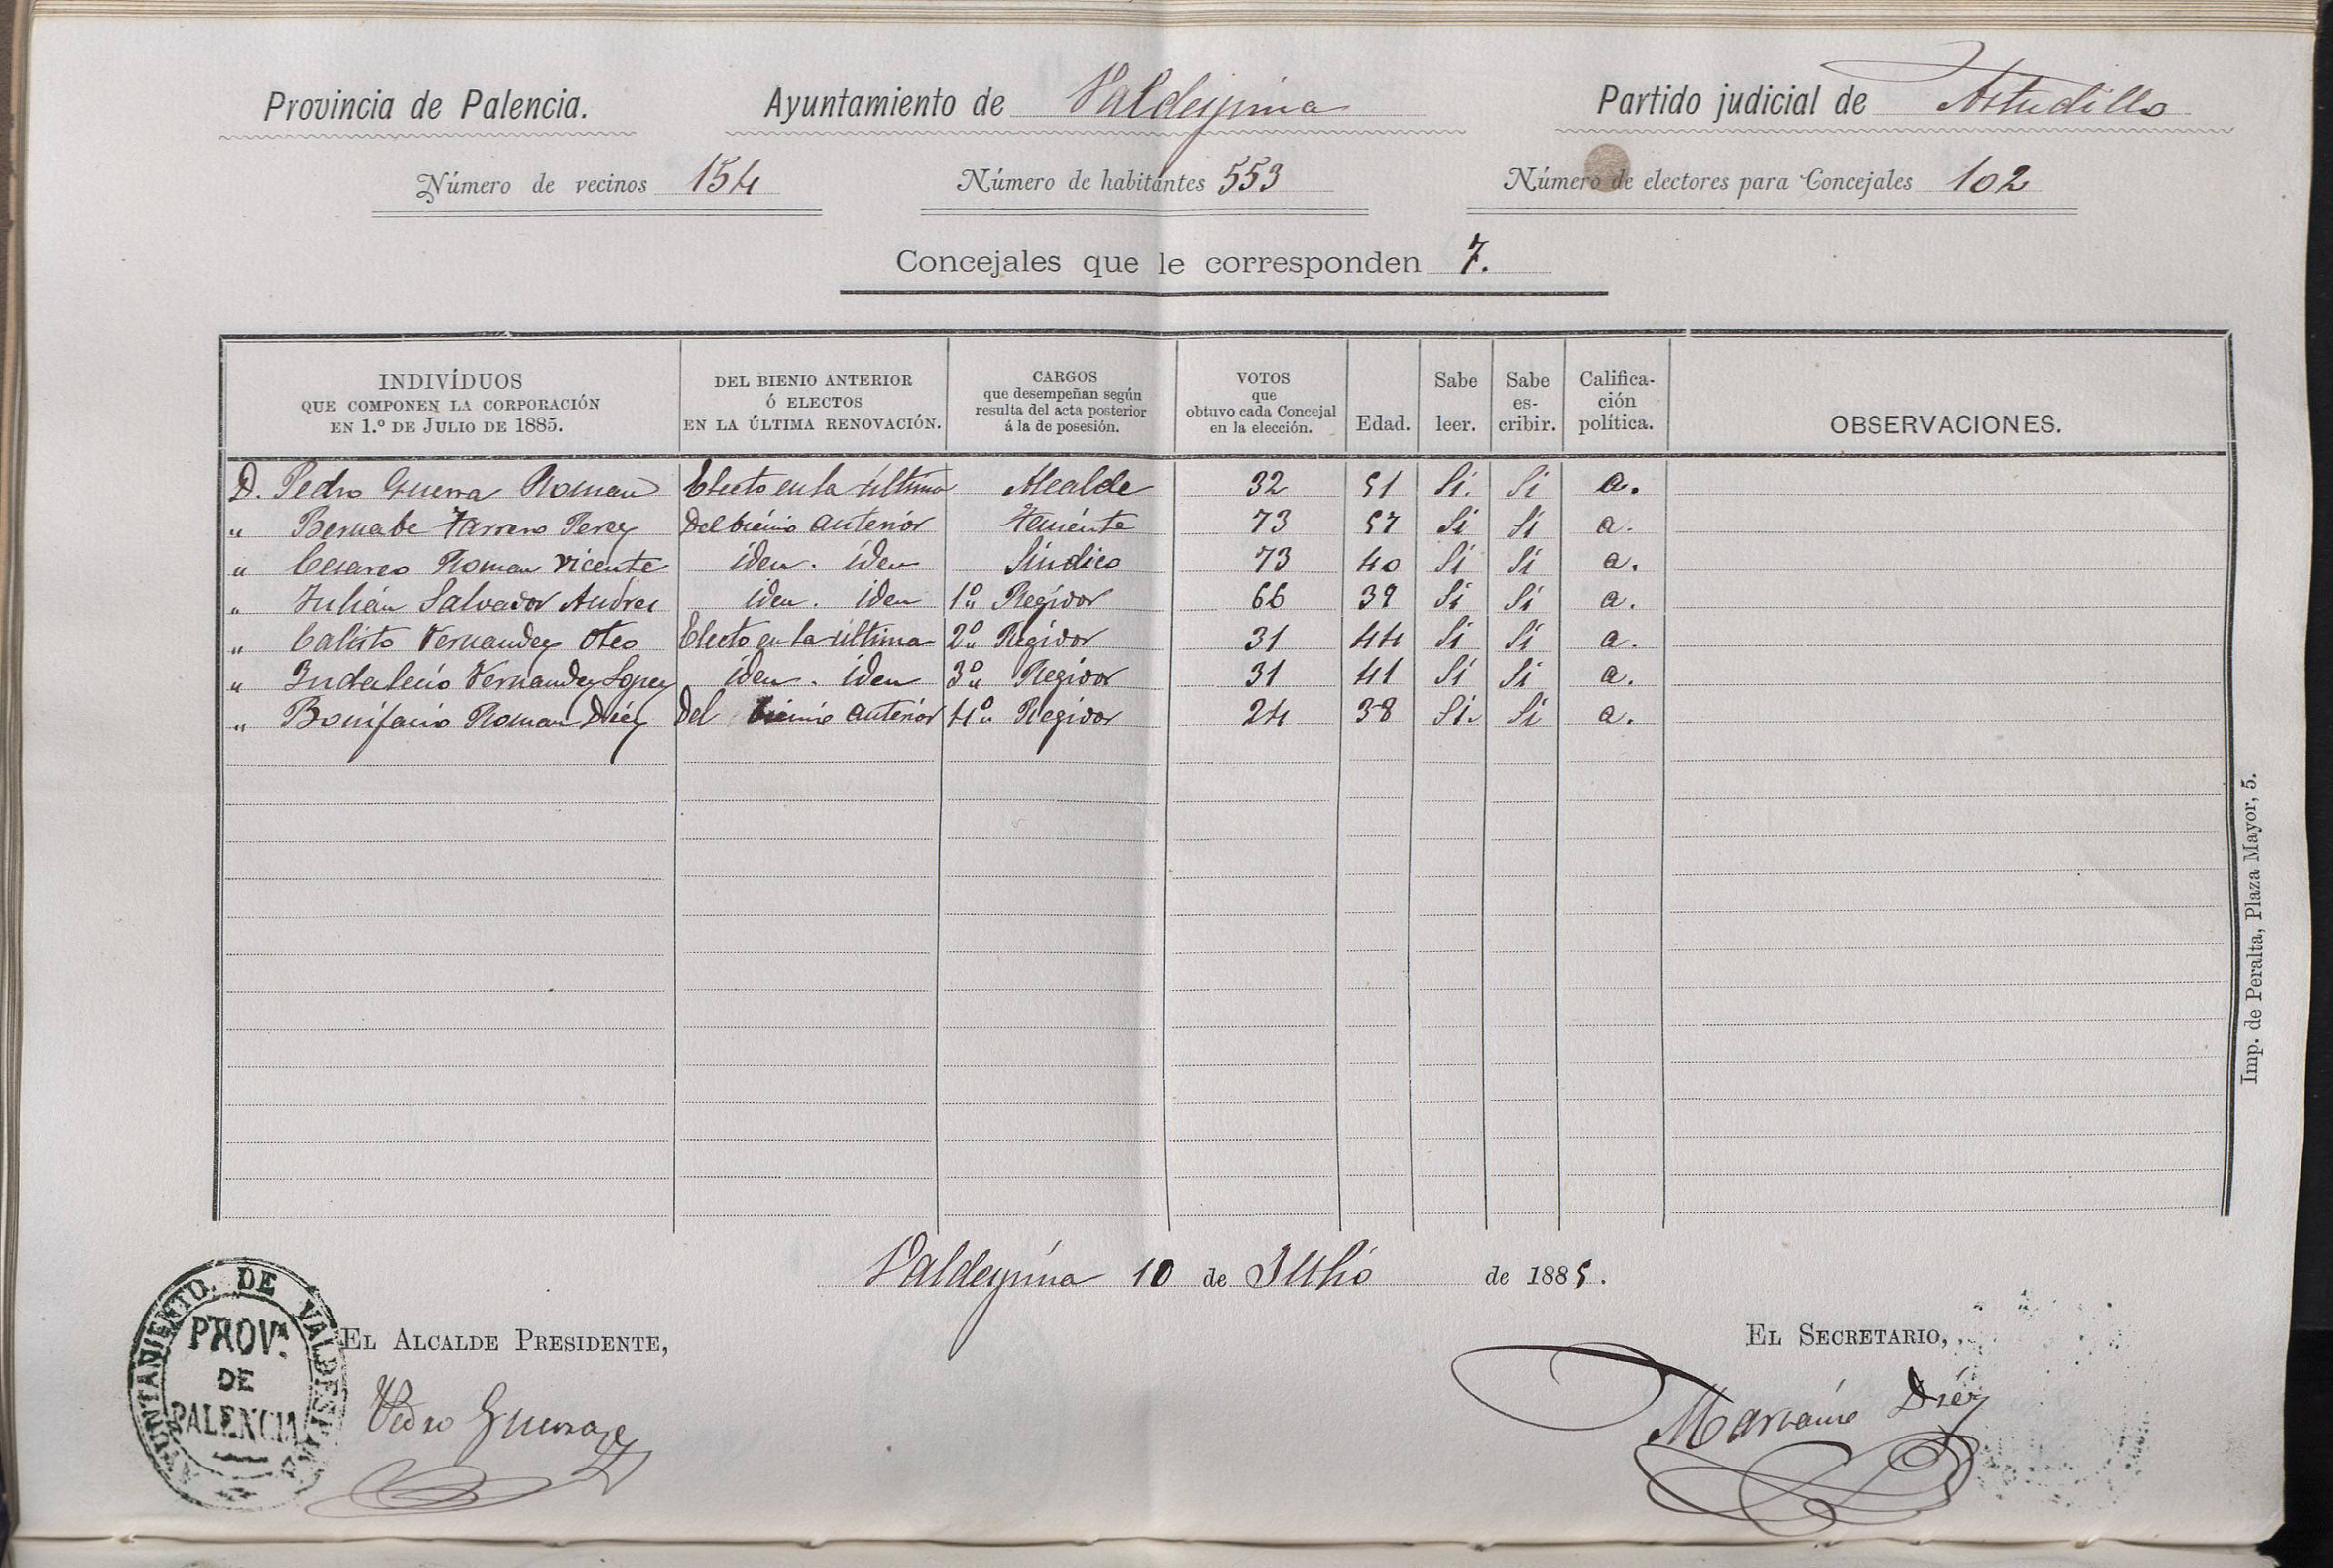 Provincia de Palencia. Ayuntamiento de Valdespina Partido judicial de Astudillo
Número de vecinos 154 Número de habitantes 553 Número de electores para Concejales 102
Concejales que le corresponden 7.
INDIVÍDUOS QUE COMPONEN LA CORPORACIÓN EN 1.º DE JULIO DE 1885. DEL BIENIO ANTERIOR Ó ELECTOS EN LA ÚLTIMA RENOVACIÓN. CARGOS que desempeñan según resulta del acta posterior á la de posesión. VOTOS que obtuvo cada Concejal en la elección. Edad. Sabe leer. Sabe es-cribir. Califica-ción política. OBSERVACIONES.
D. Pedro Guerra Roman Electo en la última Alcalde 32 51 Si. Si a.
" Bernabe Farrero Perez Del biénio anterior Teniénte 73 57 Si Si a.
" Cesareo Roman Vicente iden. iden Sindico 73 40 Si Si a.
" Julián Salvador Andres iden. iden 1º Regidor 66 39 Si Si a.
" Calisto Fernandez Oteo Electo en la última 2º Regidor 31 44 Si Si a.
" Indalecio Fernandez Lopez iden. iden 3º Regidor 31 41 Si Si a.
" Bonifacio Roman Diéz Del bienio anterior 4º Regidor 24 38 Si. Si a.
Imp. de Peralta, Plaza Mayor, 5.
Valdespina 10 de Julio de 1885.
AYUNTAMIENTO DE VALDESPINA
PROVª
DE
PALENCIA
EL ALCALDE PRESIDENTE, EL SECRETARIO,
Pedro Guerra Marciano Diéz